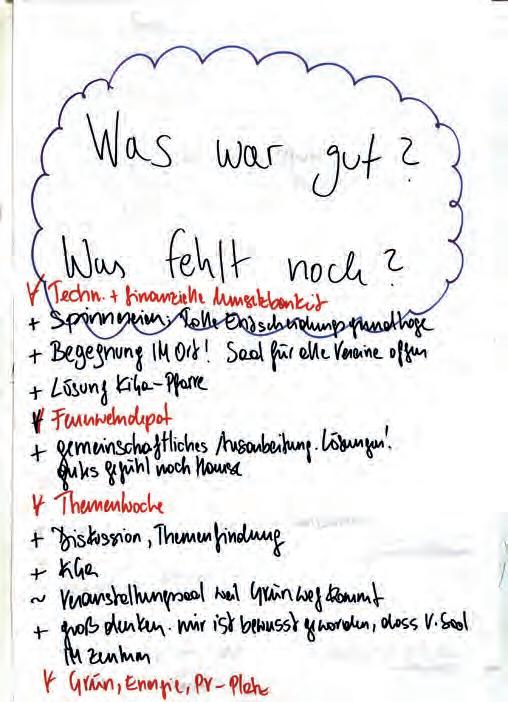 Was war gut?
Was fehlt noch?
Techn. + finanzielle Umsetzbarkeit
+ Spinnereien; tolle Entscheidungsgrundlage
+ Begegnung IM Ort! Saal für alle Vereine offen
+ Lösung KiGa-Pfarre
Feuerwehrdepot
+ gemeinschaftliches Ausarbeitung. Lösungen!
gutes gefühl nach Hause
Themenwoche
+ Diskussion, Themenfindung
+ KiGa
~ Veranstaltungssaal weil Grün weg kommt
+ groß denken. mir ist bewusst geworden, dass V. Saal
IM Zentrum
Grün, Energie, PV-Platz